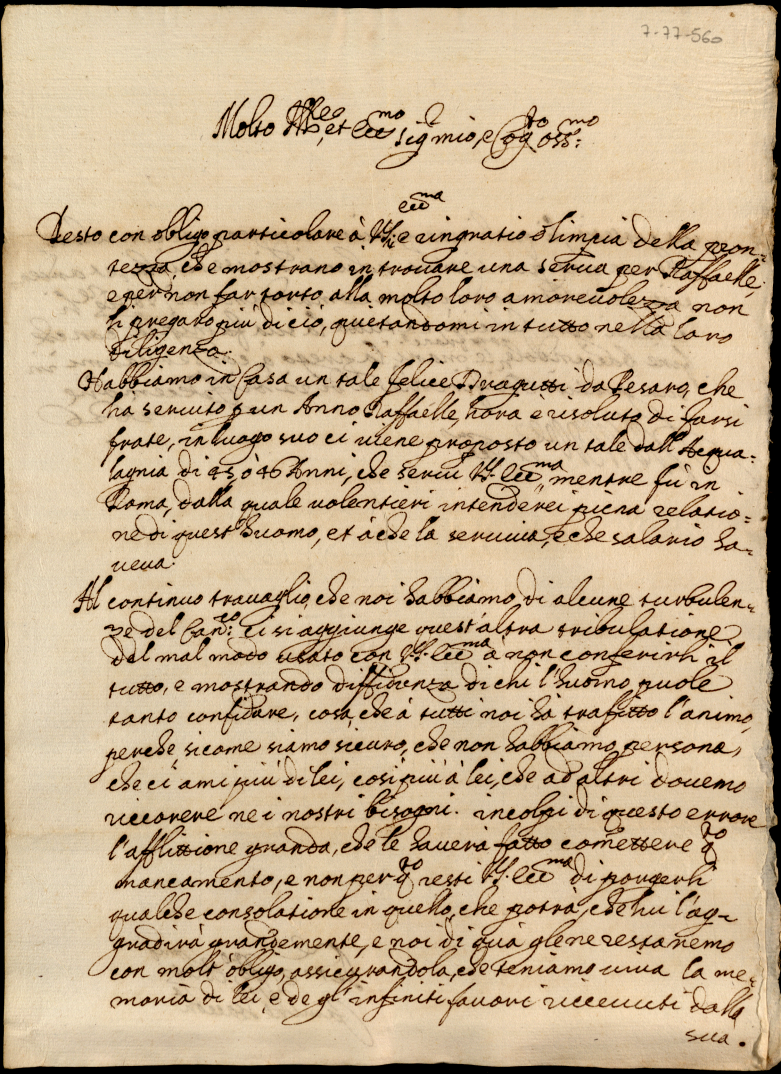 7-77-560
Molto Ill.re et ecc.mo Sig.r mio, e Cog.to oss.mo
ecc.ma
Resto con obligo particolare à V.S. e ringratio Olimpia della pron=
tezza, che mostrano in trovare una serva per Raffaelle,
e per non far torto alla molto loro amorevolezza non
li pregarò più di ciò, quietandomi in tutto nella loro
diligenza.
Habbiamo in Casa un tale Felice Dragutti da Pesaro, che
hà servito p un Anno Raffaelle, hora è risoluto di farsi
frate, in luogo suo ci viene proposto un tale dall'Acqua-
lagnia di 45 ò 46 Anni, che servì V.S. ecc.ma mentre fù in
Roma, dalla quale volentieri intenderei piena relatio=
ne di quest'huomo, et à che la serviva, e che salario ha-
veva.
Al continuo travaglio, che noi habbiamo di alcune turbulen=
ze del Can.co ci si aggiunge quest'altra tribulatione
del mal modo usato con V.S. ecc.ma à non conferirli il
tutto, e mostrando diffidenza di chi l'huomo puole
tanto confidare, cosa, che à tutti noi hà trafitto l'animo,
perche sicome siamo sicuro, che non habbiamo persona,
che ci ami più di lei, così più à lei, che ad altri dovemo
riccorere ne i nostri bisogni. incolpi di questo errore
l'afflittione granda, che le haverà fatto comettere q.to
mancamento, e non per q.to resti V.S. ecc.ma di porgerli
qualche consolatione in quello, che potrà, che lui l'ag-
gradirà grandemente, e noi di quà gle ne restaremo
con molt'obligo, assicurandola, che teniamo viva la me=
moria di lei, e de gl'infiniti favori riccevuti dalla
sua.